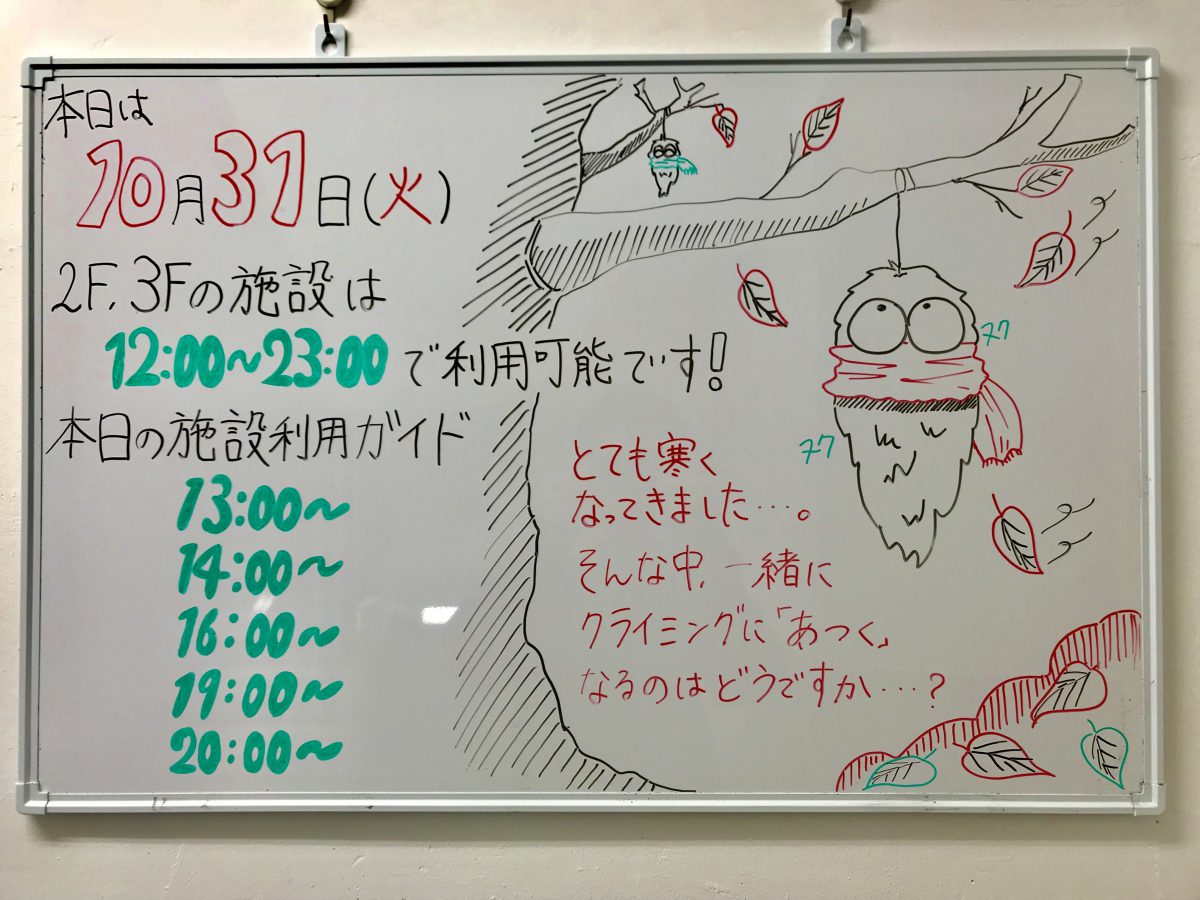 本日は
10月31日(火)
2F、3Fの施設は
12:00〜23:00で利用可能です！
本日の施設利用ガイド
13:00〜
14:00〜
16:00〜
19:00〜
20:00〜
とても寒く
なってきました…。
そんな中、一緒に
クライミングに「あつく」
なるのはどうですか…？